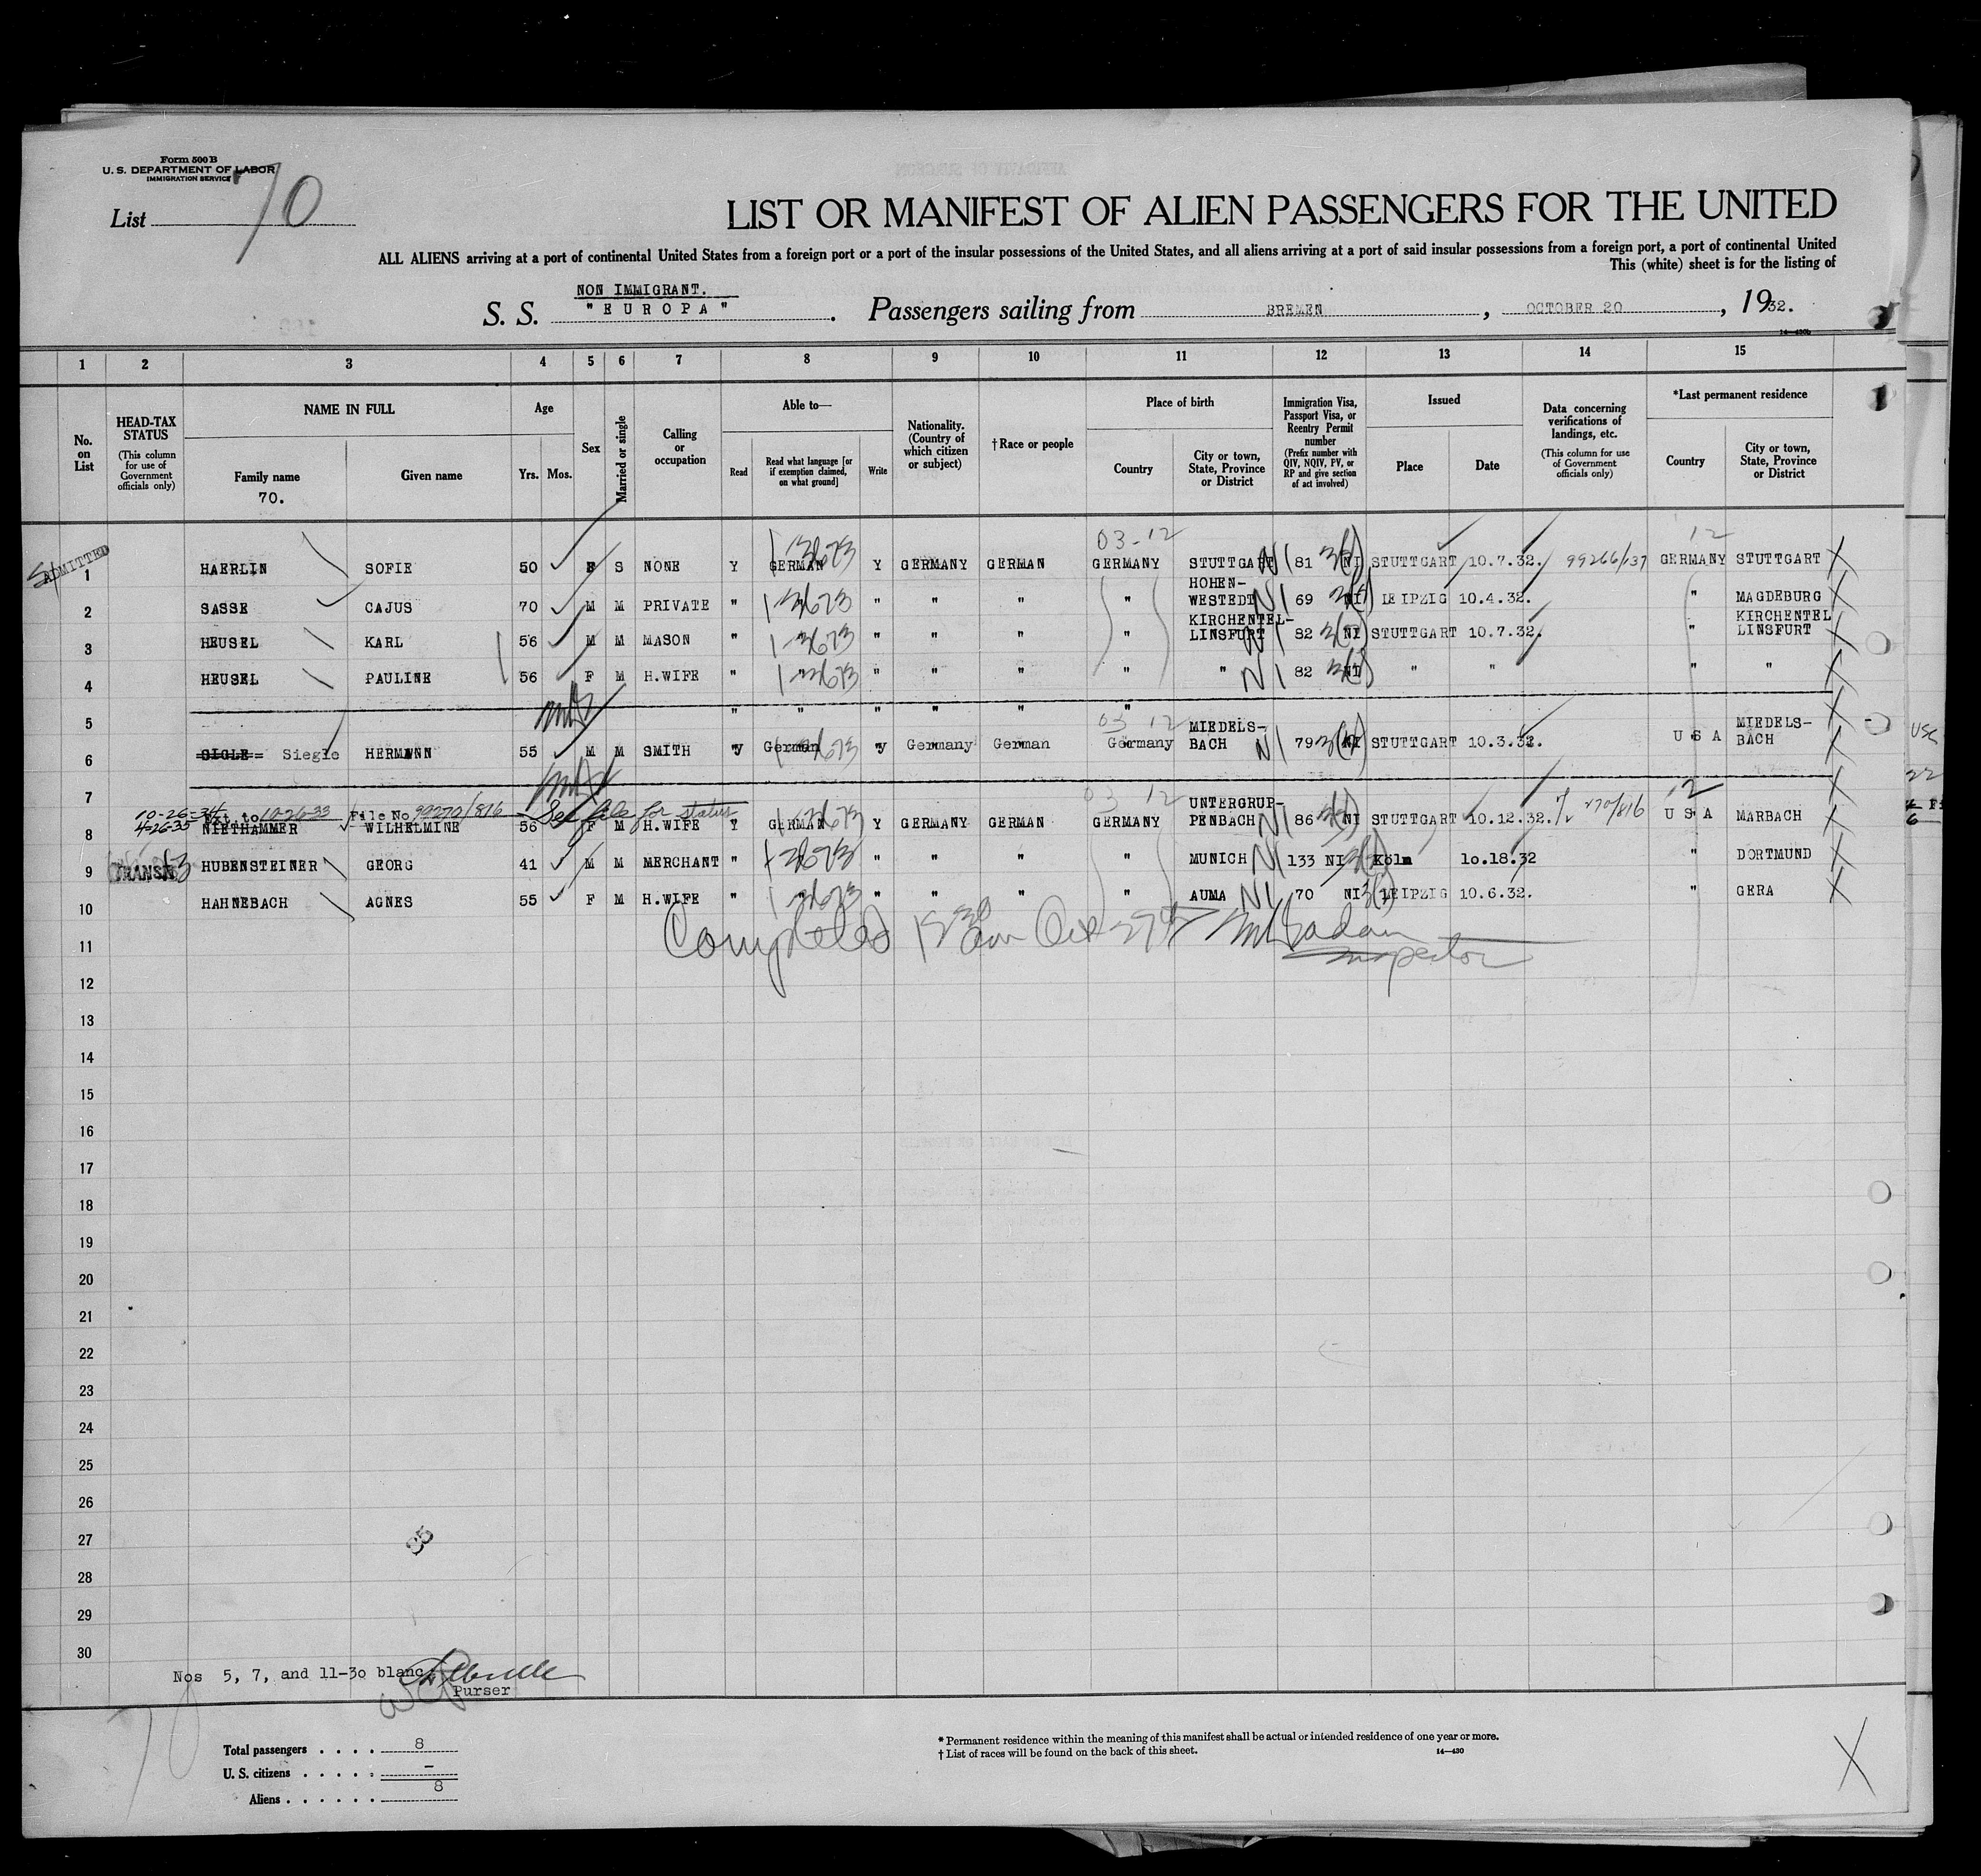 Form 500 B
U. S. DEPARTMENT OF LABOR
IMMIGRATION SERVICE
List 70
LIST OR MANIFEST OF ALIEN PASSENGERS FOR THE UNITED
ALL ALIENS arriving at a port of continental United States from a foreign port or a port of the insular possessions of the United States, and all aliens arriving at a port of said insular possessions from a foreign port, a port of continental United
This (white) sheet is for the listing of
NON IMMIGRANT.
S. S. "EUROPA". Passengers sailing from BREMEN, OCTOBER 20, 1932.
14—430b
1 2 3 4 5 6 7 8 9 10 11 12 13 14 15
No. on List
HEAD-TAX STATUS (This column for use of Government officials only)
NAME IN FULL
Family name
70.
Given name
Age
Yrs. Mos.
Sex
Married or single
Calling or occupation
Able to—
Read
Read what language [or if exemption claimed, on what ground]
Write
Nationality. (Country of which citizen or subject)
†Race or people
Place of birth
Country
City or town, State, Province or District
Immigration Visa, Passport Visa, or Reentry Permit number (Prefix number with QIV, NQIV, PV, or RP and give section of act involved)
Issued
Place
Date
Data concerning verifications of landings, etc. (This column for use of Government officials only)
*Last permanent residence
Country
City or town, State, Province or District
03-12 12
ADMITTED 1 HAERLIN SOFIE 50 F S NONE Y GERMAN Y GERMANY GERMAN GERMANY STUTTGART NI 81 NI STUTTGART 10.7.32. 99266/137 GERMANY STUTTGART X
2 SASSE CAJUS 70 M M PRIVATE " " " " " " HOHEN-WESTEDT NI 69 NI LEIPZIG 10.4.32. " MAGDEBURG X
3 HEUSEL KARL 56 M M MASON " " " " " " KIRCHENTEL-LINSFURT NI 82 NI STUTTGART 10.7.32. " KIRCHENTEL LINSFURT X
4 HEUSEL PAULINE 56 F M H.WIFE " " " " " " " NI 82 NI " " " " X
5 " " " " " " X
03 12
6 SIGLE= Siegle HERMANN 55 M M SMITH y German y Germany German Germany MIEDELS-BACH NI 79 NI STUTTGART 10.3.32. U S A MIEDELS-BACH X
7 X
10-26-34
4-26-35 Ext. to 10-26-33 File No 99270/816 — See file for status
03 12 12
8 NIETHAMMER WILHELMINE 56 F M H.WIFE Y GERMAN Y GERMANY GERMAN GERMANY UNTERGRUP-PENBACH NI 86 NI STUTTGART 10.12.32. 270/816 U S A MARBACH X
TRANSIT 9 HUBENSTEINER GEORG 41 M M MERCHANT " " " " " " MUNICH NI 133 NI Köln 10.18.32 " DORTMUND X
10 HAHNEBACH AGNES 55 F M H.WIFE " " " " " " AUMA NI 70 NI LEIPZIG 10.6.32. " GERA X
Completed Oct 27th
Inspector
11
12
13
14
15
16
17
18
19
20
21
22
23
24
25
26
27
28
29
30
Nos 5, 7, and 11-30 blanc
Purser
70
Total passengers . . . . 8
U. S. citizens . . . . . –
Aliens . . . . . . 8
* Permanent residence within the meaning of this manifest shall be actual or intended residence of one year or more.
† List of races will be found on the back of this sheet.
14—430
X